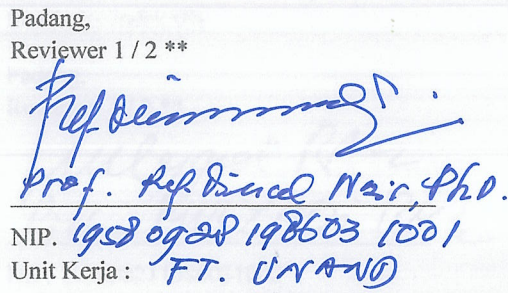 Padang,
Reviewer 1 / 2 **
Prof. Refdinal Nazir, Ph.D.
NIP. 19580928 198603 1001
Unit Kerja : FT. UNAND